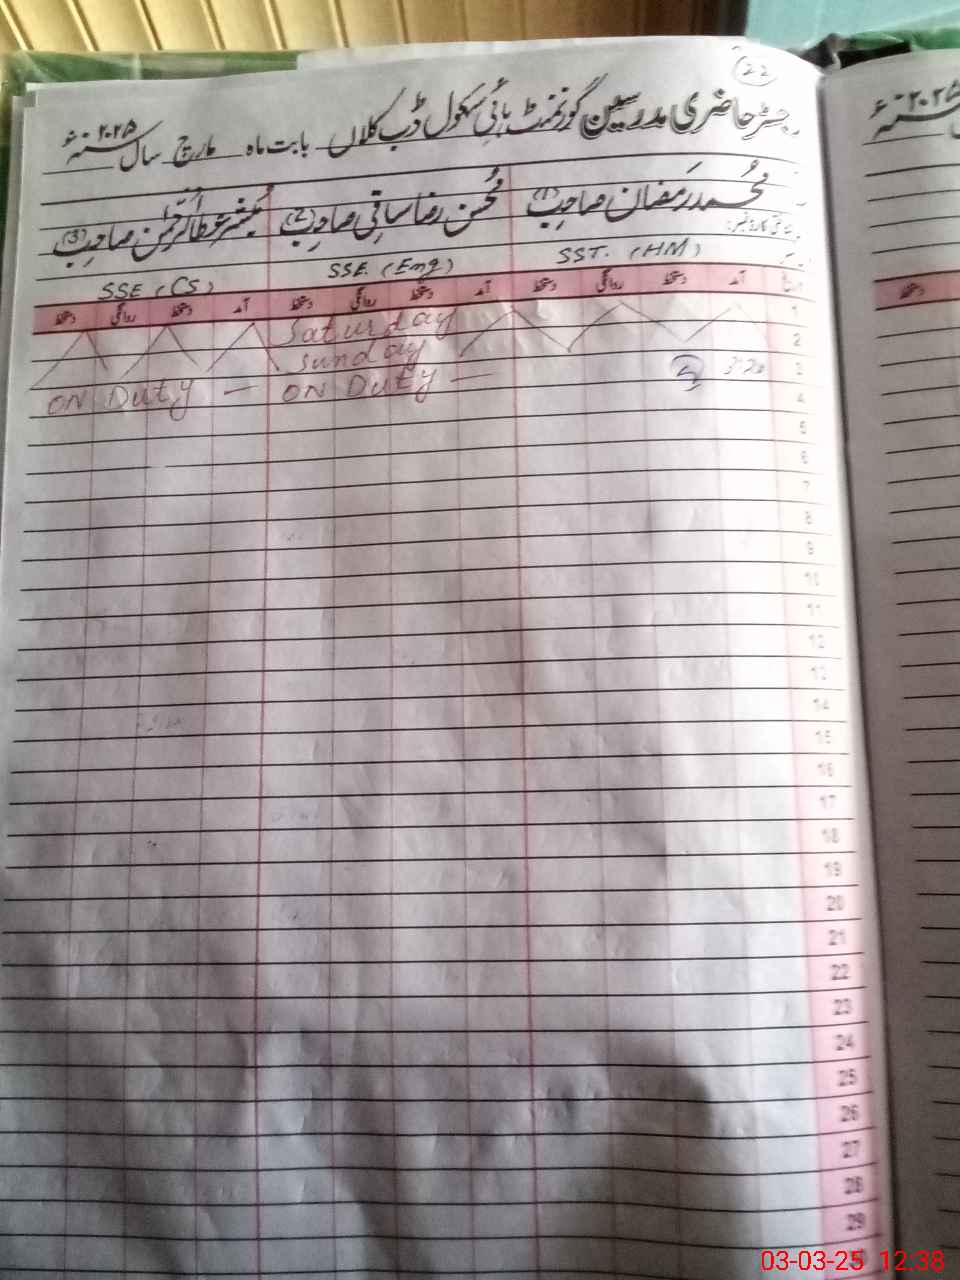 22
رجسٹر حاضری مدرسین گورنمنٹ ہائی سکول ڈب کلاں بابت ماہ مارچ سال سنہ ۲۰۲۵ء
محمد رمضان صاحب (1) محسن رضا ساقی صاحب (2) مبشر عطاالرحمٰن صاحب (3)
SST. (HM) SSE. (Eng) SSE (CS)
آمد دستخط روانگی دستخط آمد دستخط روانگی دستخط آمد دستخط روانگی دستخط
1 Saturday
2 Sunday
3 ON Duty — ON Duty —
4
5
6
7
8
9
10
11
12
13
14
15
16
17
18
19
20
21
22
23
24
25
26
27
28
29
سنہ ۲۰۲۵ء
دستخط
03-03-25 12:38